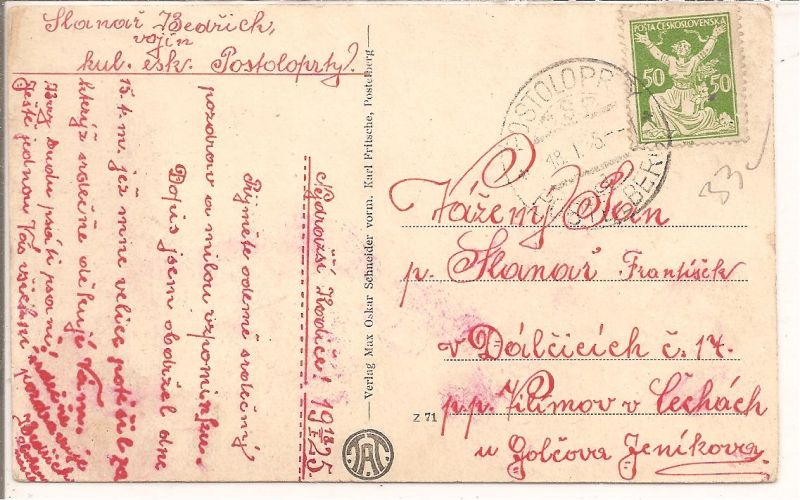 Slanař Bedřich,
vojín
kul. esk. Postoloprty.
Nejdražší Rodiče! 19 18/I 25.
Přijměte odemě srdečný
pozdrav a milou vzpomínku.
Dopis jsem obdržel dne
15. t. m. jež mne velice potěšil za
který srdečně děkuji Vám.
Brzy budu psáti psaní,
Ještě jednou Vás všechny
— Verlag Max Oskar Schneider vorm. Karl Fritsche, Postelberg —
Z 71
POŠTA ČESKOSLOVENSKÁ
50 50
POSTOLOPRTY
18. I. 25
POSTELBERG
33
Vážený Pan
p. Slanař František
v Dálčicích č. 17.
p. p. Vilímov v Čechách
u Golčova Jeníkova.